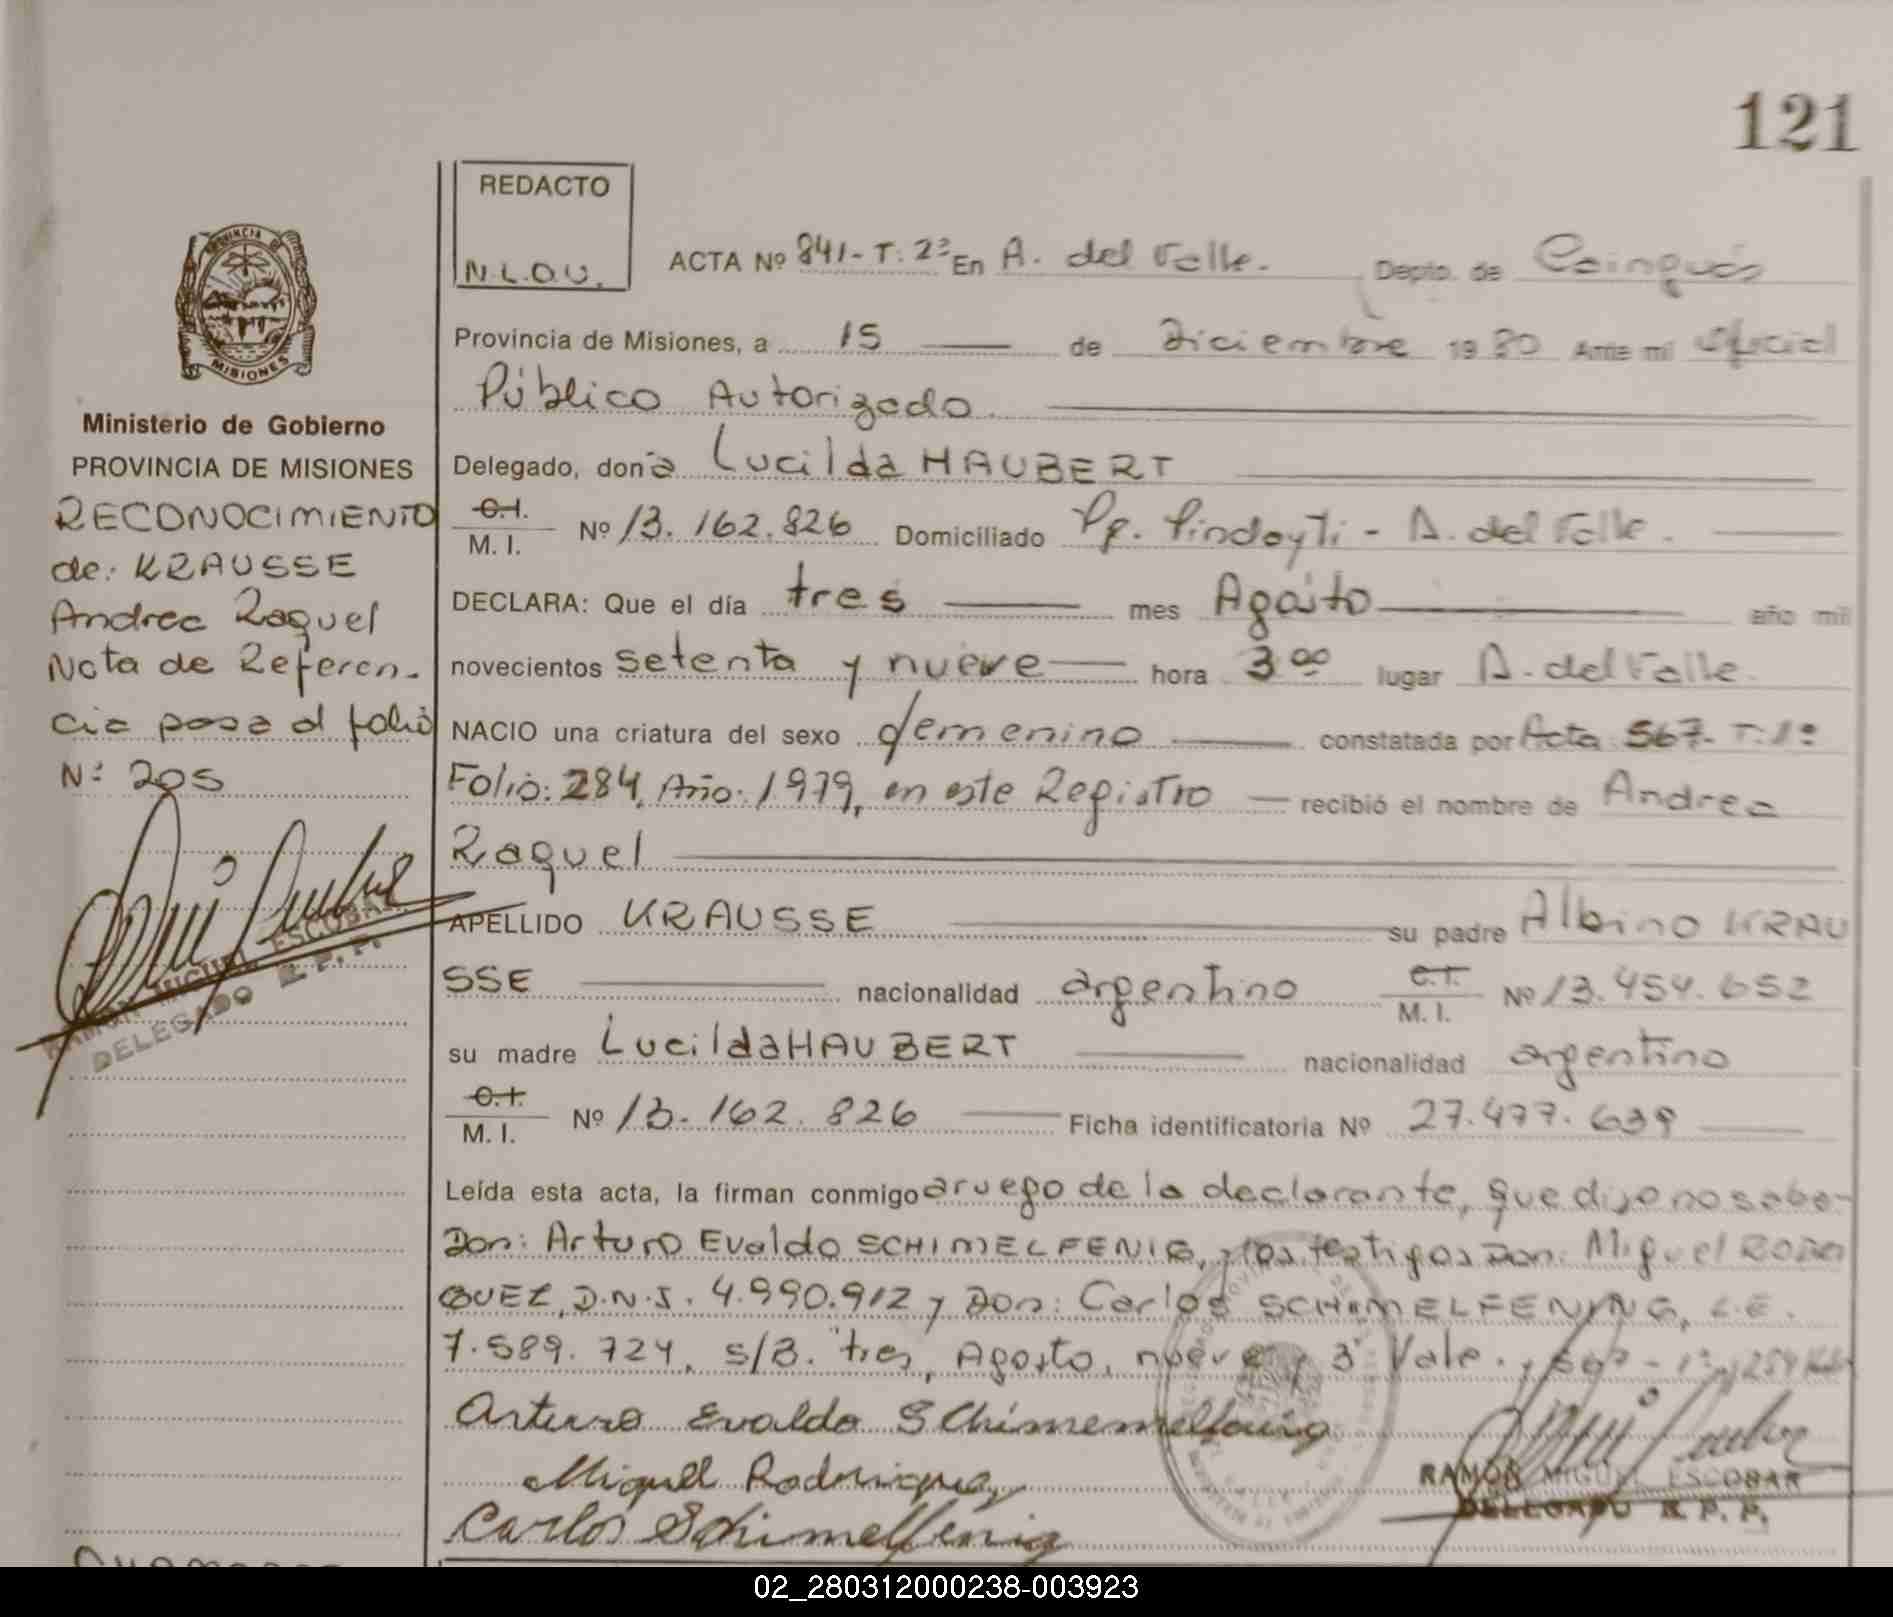 121
REDACTO
N.L.O.U.
PROVINCIA DE
MISIONES
Ministerio de Gobierno
PROVINCIA DE MISIONES
RECONOCIMIENTO
de: KRAUSSE
Andrea Raquel
Nota de Referen-
cia pasa al folio
Nº 205
RAMON MIGUEL ESCOBAR
DELEGADO R. P. P.
ACTA Nº 841- T: 2º En A. del Valle. Depto. de Cainguás
Provincia de Misiones, a 15 de Diciembre 19 80 Ante mi Oficial
Público Autorizado.
Delegado, don a Lucilda HAUBERT
C.I.
M. I. Nº 13.162.826 Domiciliado Pje. Pindayti - A. del Valle.
DECLARA: Que el día tres mes Agosto año mil
novecientos setenta y nueve hora 3 00 lugar A. del Valle.
NACIO una criatura del sexo femenino constatada por Acta 567- T: 1º
Folio: 284, Año: 1979, en este Registro recibió el nombre de Andrea
Raquel
APELLIDO KRAUSSE su padre Albino KRAU
SSE nacionalidad argentino C.I.
M. I. Nº 13.454.652
su madre Lucilda HAUBERT nacionalidad argentino
C.I.
M. I. Nº 13.162.826 Ficha identificatoria Nº 27.477.639
Leída esta acta, la firman conmigo a ruego de la declarante, que dijo no saber
Don: Arturo Evaldo SCHIMELFENIG, y los testigos Don: Miguel RODRI
GUEZ, D.N.I. 4.990.912 y Don: Carlos SCHIMELFENING, L.E.
7.589.724, s/B. tres, Agosto, nueve y 3 Vale.
Arturo Evaldo SChimemelfenig
Miguel Rodriguez
Carlos Schimelfenig
RAMON MIGUEL ESCOBAR
DELEGADO R. P. P.
02_280312000238-003923